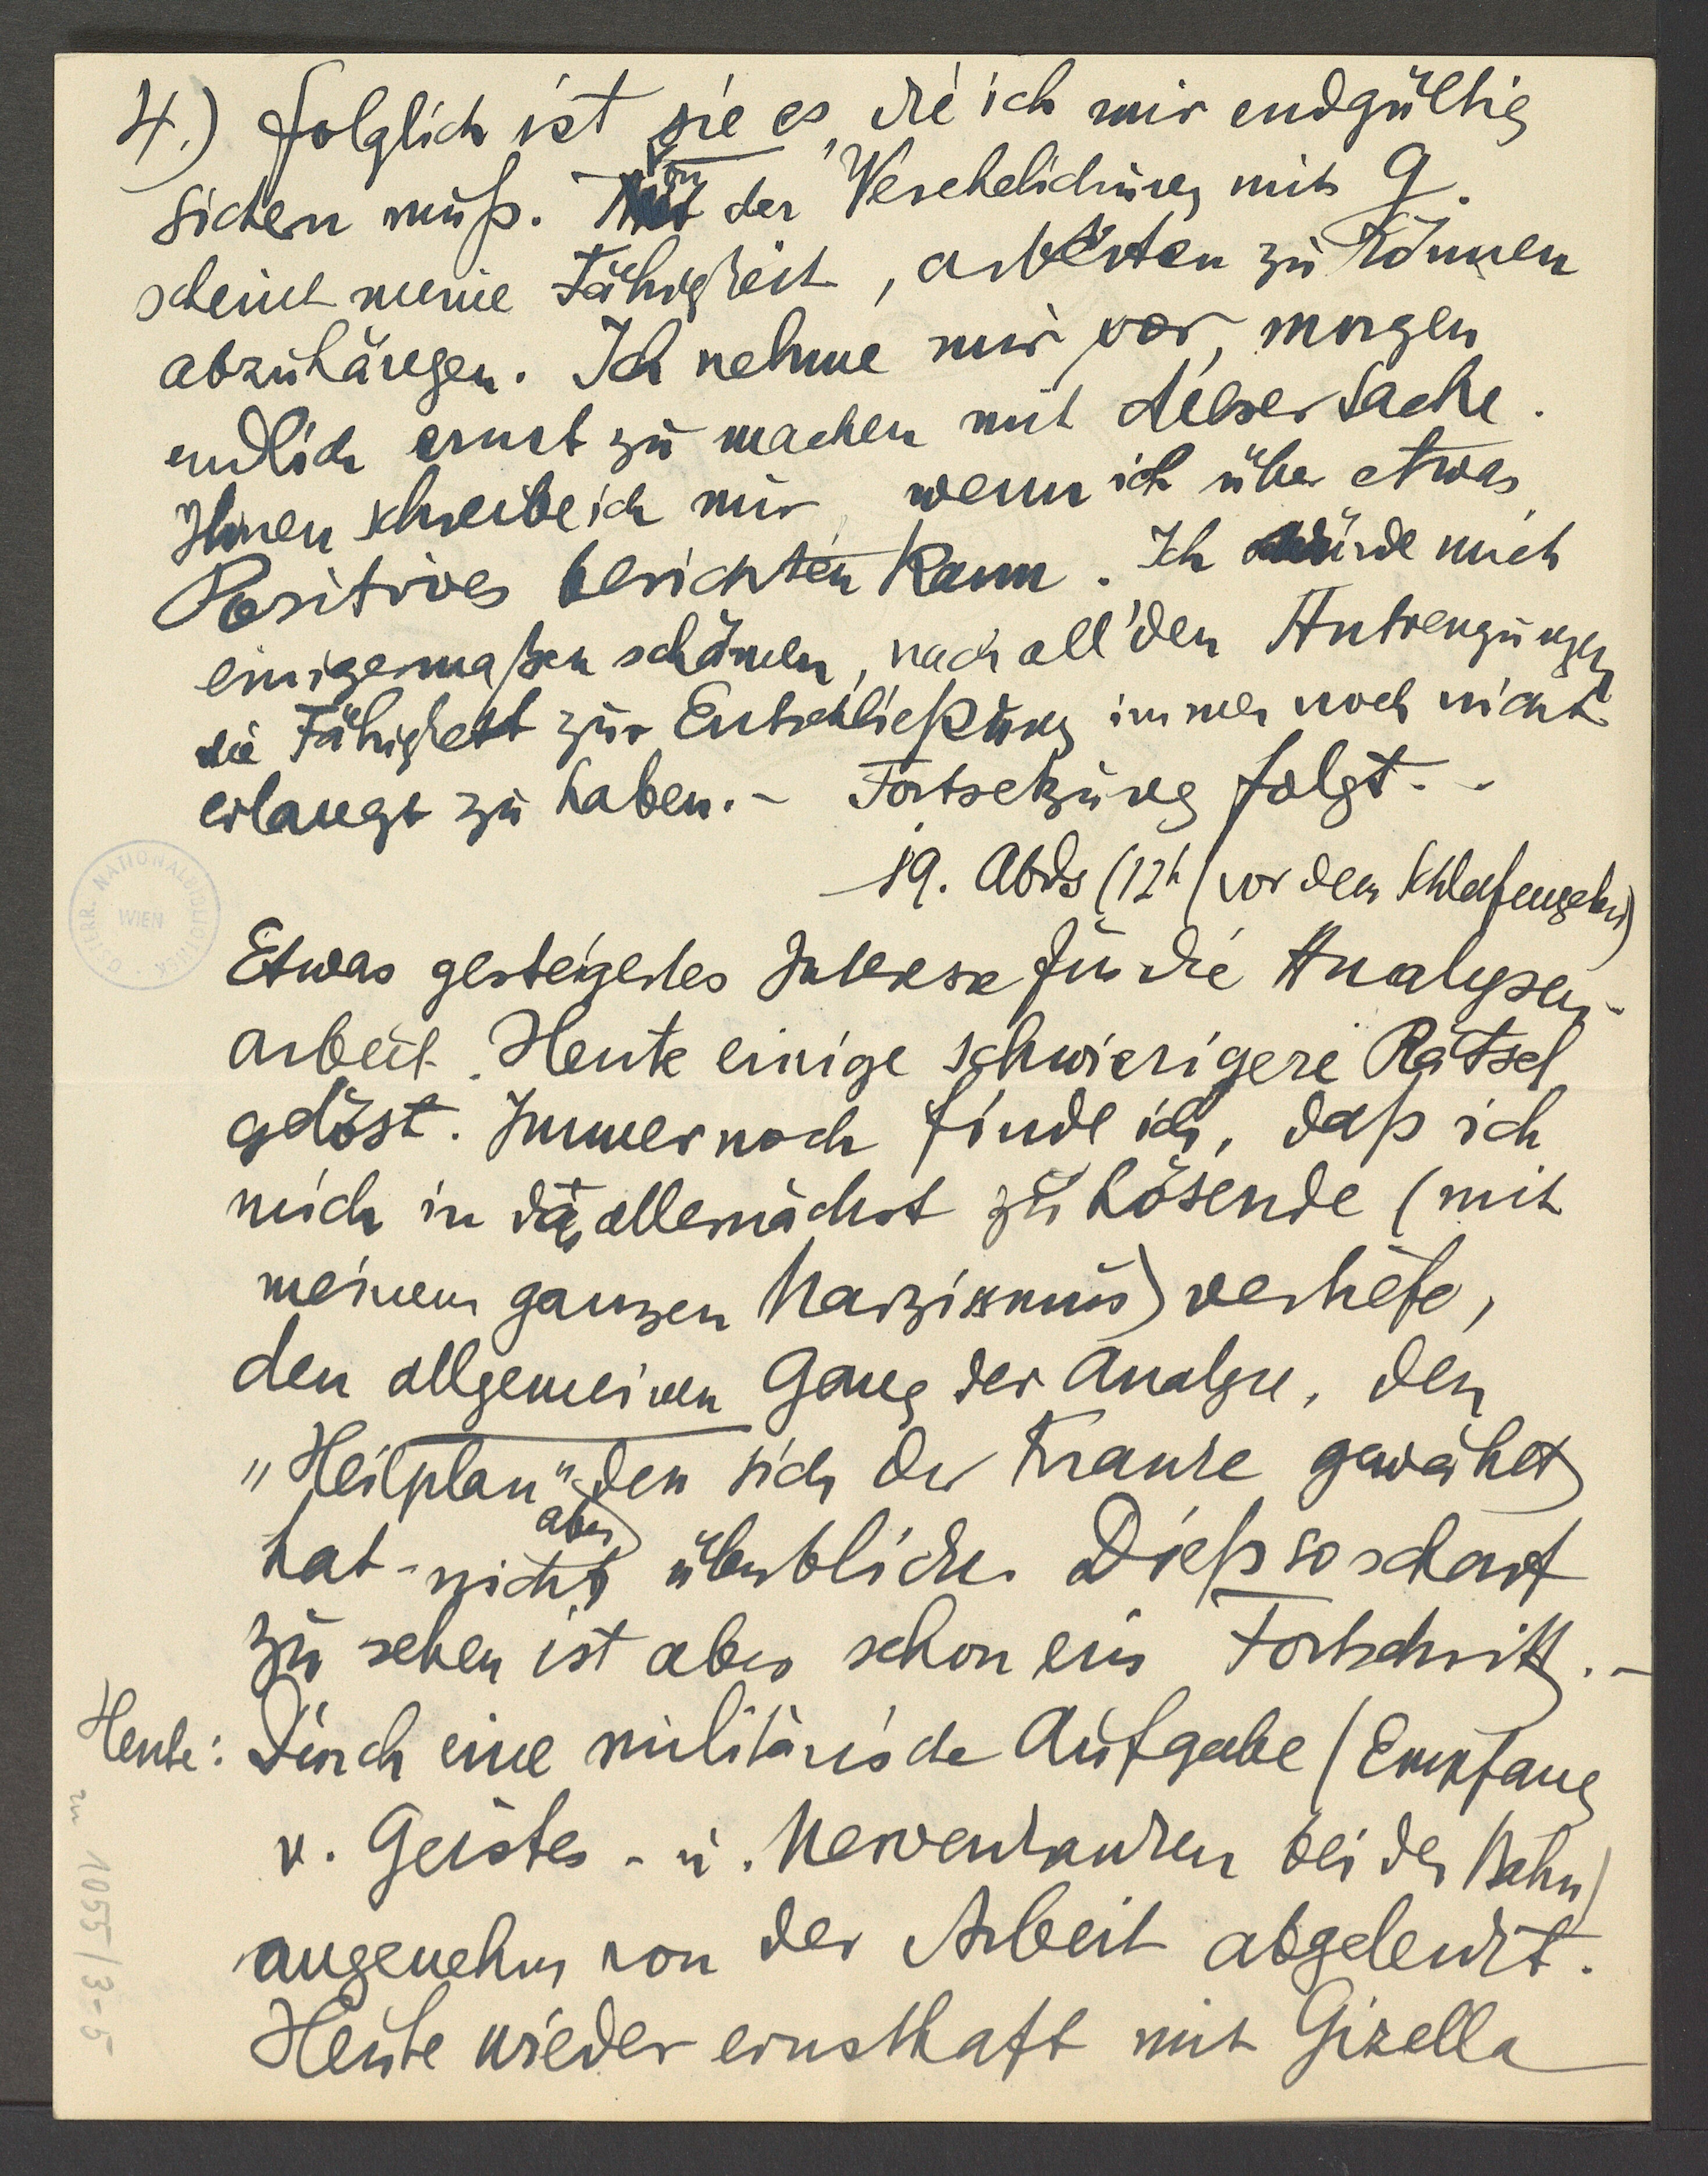 4.) folglich ist sie es, die ich mir endgültig
sichern muß. Von der Verehelichung mit G.
scheint meine Fähigkeit, arbeiten zu können
abzuhängen. Ich nehme mir vor, morgen
endlich ernst zu machen mit dieser Sache.
Ihnen schreibe ich nur, wenn ich über etwas
Positives berichten kann. Ich würde mich
einigermaßen schämen, nach all' den Anstrengungen
die Fähigkeit zur Entschließung immer noch nicht
erlangt zu haben. – Fortsetzung folgt. –
19. Abds (12h / vor dem Schlafengehen)
Etwas gesteigertes Interesse für die Analysen-
arbeit. Heute einige schwierigere Rätsel
gelöst. Immer noch finde ich, daß ich
mich in das allernächst zu Lösende (mit
meinem ganzen Narzissmus) vertiefe,
den allgemeinen Gang der Analyse, den
„Heilplan" den sich der Kranke gewählt
hat – aber nicht überblicke. Dieß so scharf
zu sehen ist aber schon ein Fortschritt. –
Heute: Durch eine militärische Aufgabe (Empfang
v. Geistes- u. Nervenkranken bei der Bahn)
angenehm von der Arbeit abgelenkt.
Heute wieder ernsthaft mit Gizella
ÖSTERR. NATIONALBIBLIOTHEK · WIEN
zu 1055/3-5